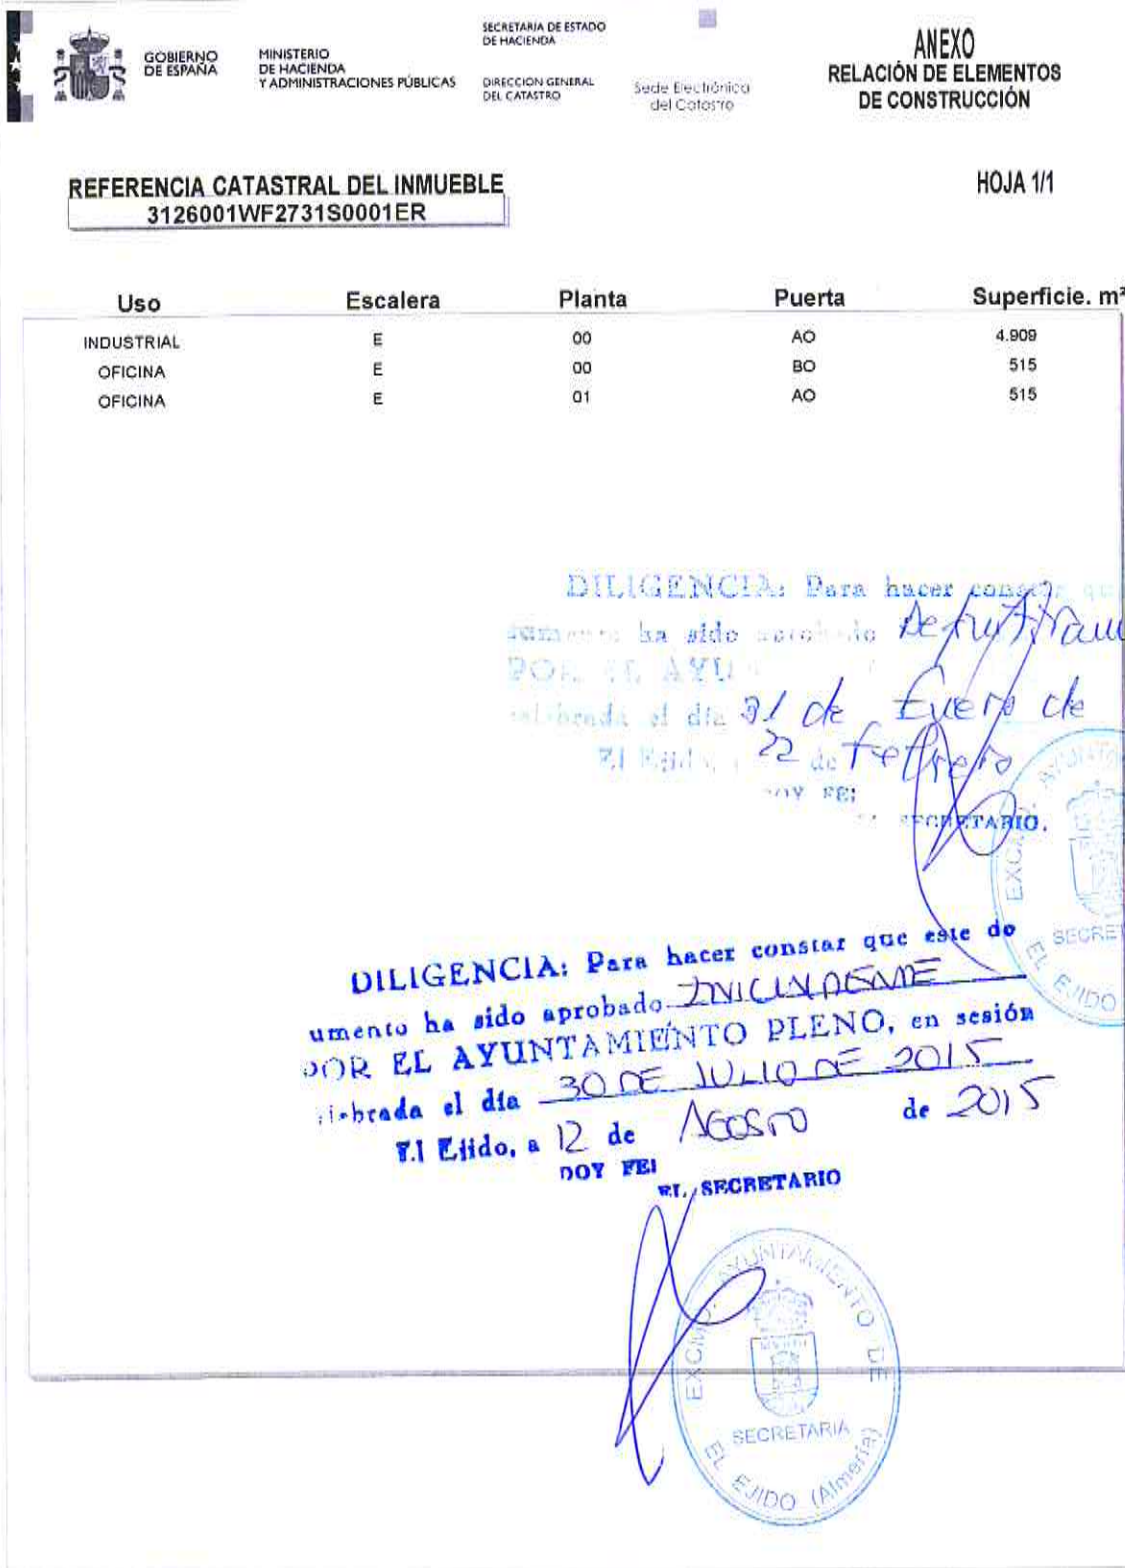 GOBIERNO
DE ESPAÑA
MINISTERIO
DE HACIENDA
Y ADMINISTRACIONES PÚBLICAS
SECRETARIA DE ESTADO
DE HACIENDA
DIRECCION GENERAL
DEL CATASTRO
Sede Electrónica
del Catastro
ANEXO
RELACIÓN DE ELEMENTOS
DE CONSTRUCCIÓN
REFERENCIA CATASTRAL DEL INMUEBLE
3126001WF2731S0001ER
HOJA 1/1
Uso Escalera Planta Puerta Superficie. m²
INDUSTRIAL E 00 AO 4.909
OFICINA E 00 BO 515
OFICINA E 01 AO 515
DILIGENCIA: Para hacer constar qu
ha sido
POR EL AYU
el día 31 de Enero de
El Ejido, 22 de Febrero
DOY FE:
SECRETARIO.
EXCMO. AYUNTO
SECRET
EL EJIDO
DILIGENCIA: Para hacer constar que este do
umento ha sido aprobado INICIALMENTE
POR EL AYUNTAMIENTO PLENO, en sesión
lebrada el día 30 DE JULIO DE 2015
El Ejido, a 12 de AGOSTO de 2015
DOY FE:
EL SECRETARIO
EXCMO. AYUNTAMIENTO DE
SECRETARIA
EL EJIDO (Almería)